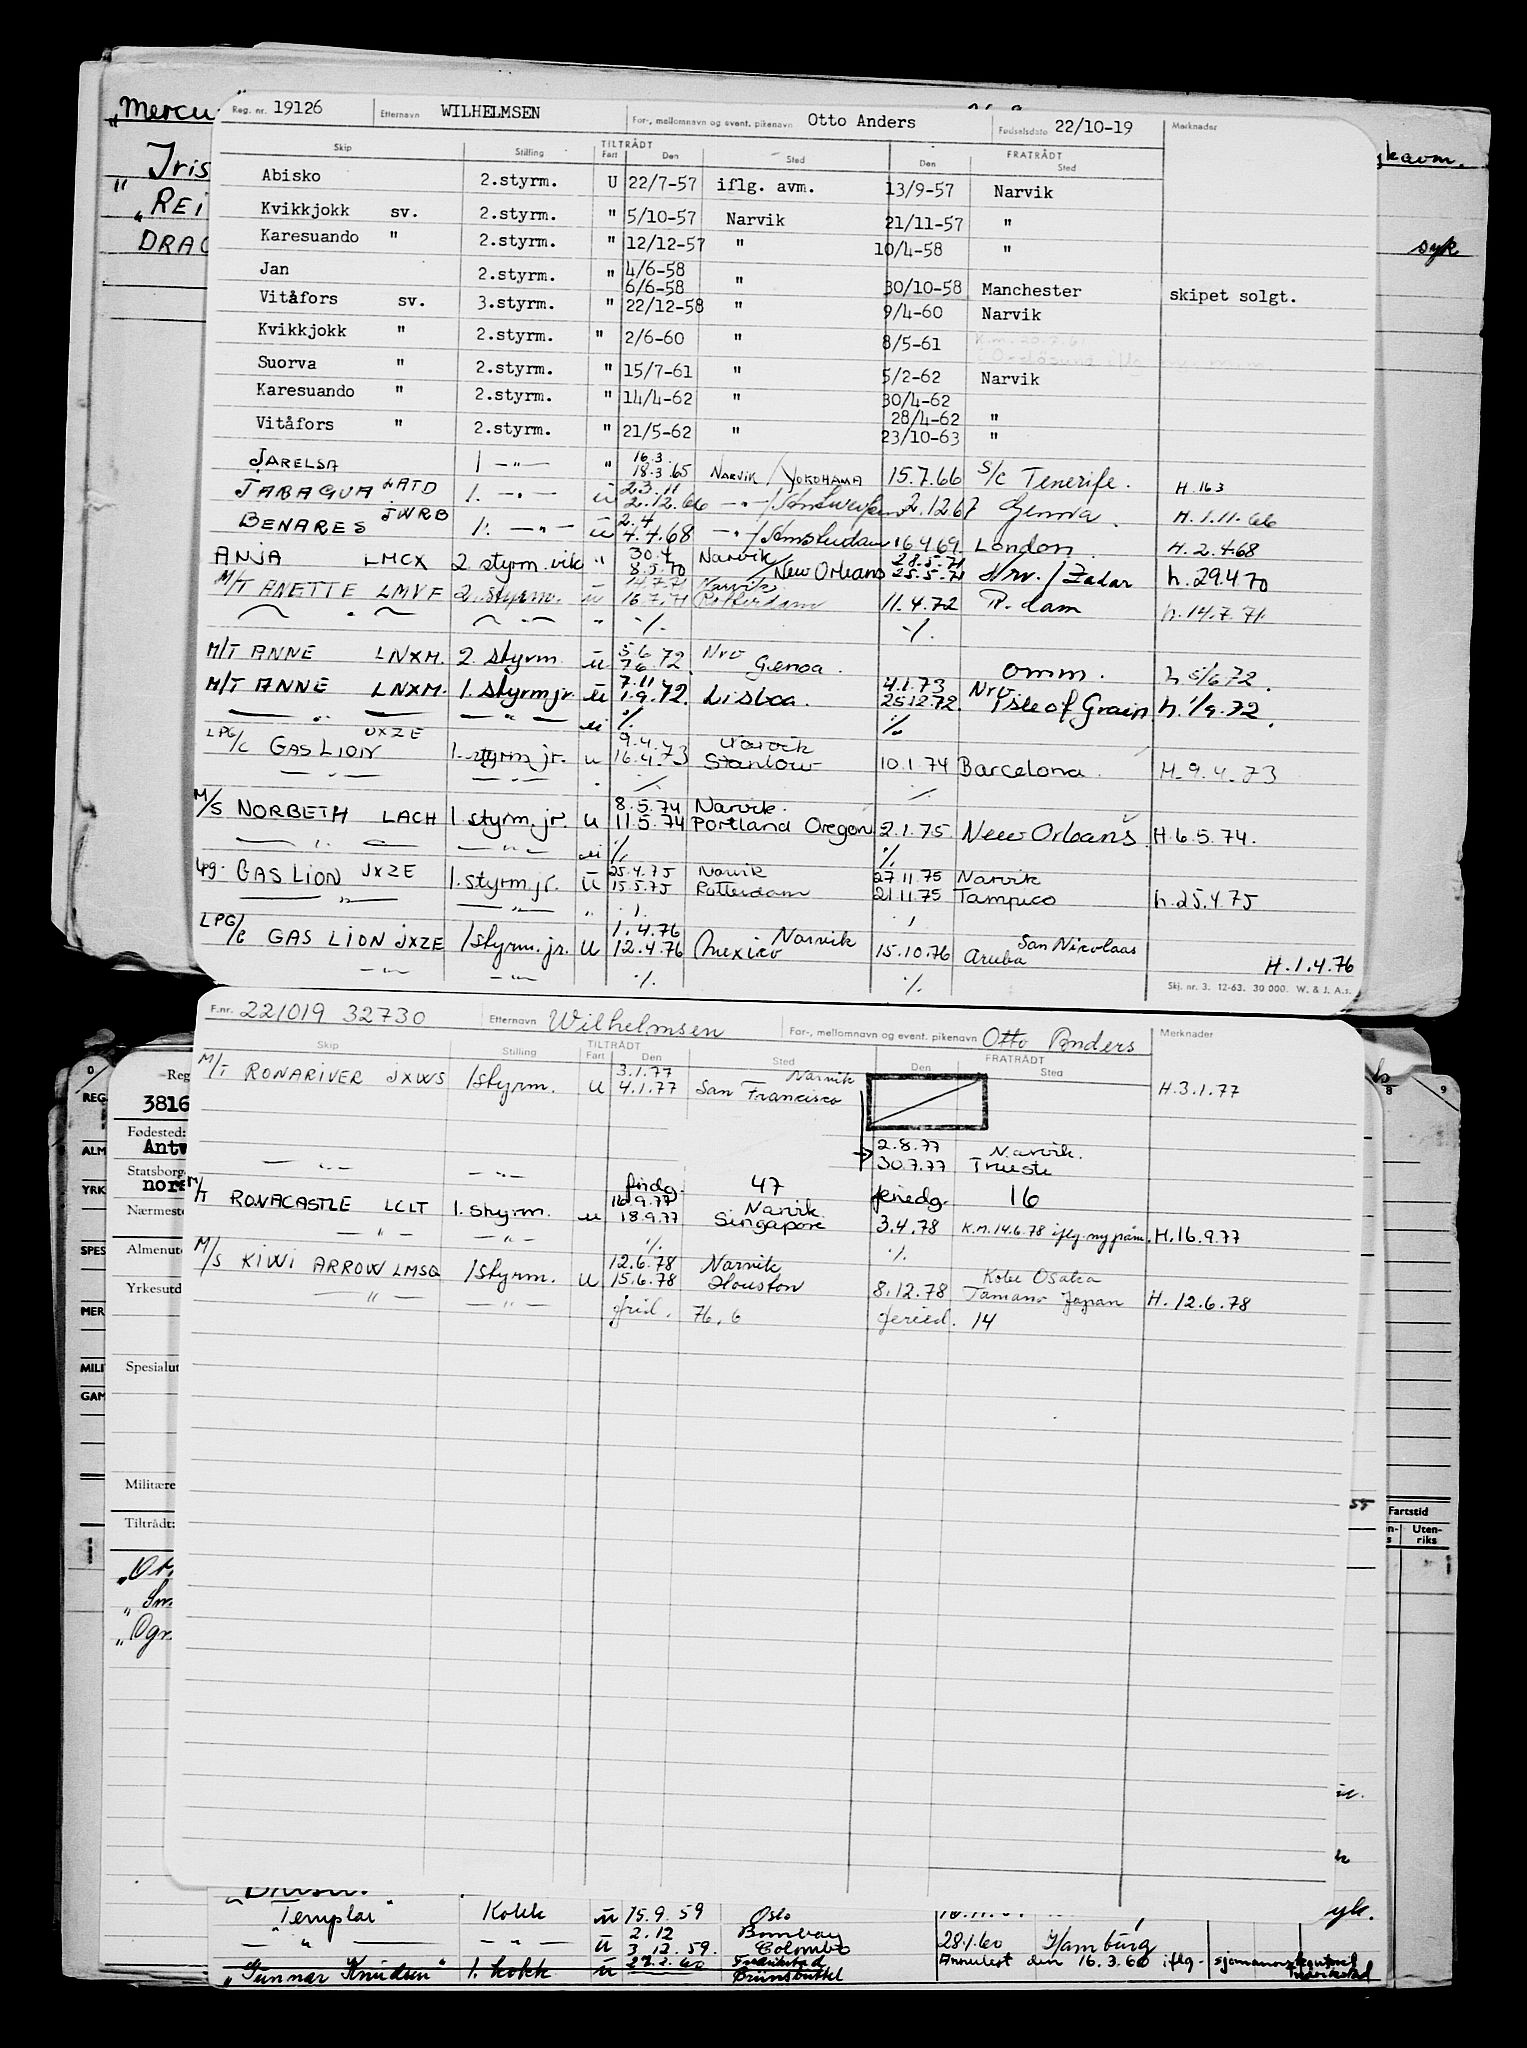 „Mercu
Reg. nr. 19126 Etternavn WILHELMSEN For-, mellomnavn og event. pikenavn Otto Anders Fødselsdato 22/10-19 Merknader
Skip Stilling TILTRÅDT Fart Den Sted Den FRATRÅDT Sted
„Iris
„REI
DRAG
syk
Abisko 2.styrm. U 22/7-57 iflg. avm. 13/9-57 Narvik
Kvikkjokk sv. 2.styrm. " 5/10-57 Narvik 21/11-57 "
Karesuando " 2.styrm. " 12/12-57 " 10/4-58 "
Jan 2.styrm. " 4/6-58
6/6-58 " 30/10-58 Manchester skipet solgt.
Vitåfors sv. 3.styrm. " 22/12-58 " 9/4-60 Narvik
Kvikkjokk " 2.styrm. " 2/6-60 " 8/5-61
Suorva " 2.styrm. " 15/7-61 " 5/2-62 Narvik
Karesuando " 2.styrm. " 14/4-62 " 30/4-62
28/4-62 "
Vitåfors " 2.styrm. " 21/5-62 " 23/10-63 "
JARELSA 1 -"- " 16.3.
18.3.65 NARVIK / YOKOHAMA 15.7.66 S/C Tenerife. H.163
JABAGUA LATD 1. -"- ū 23.11
2.12.66 -"- / Antwerpen 2.1267 Genova. H.1.11.66
BENARES JWRB 1. -"- ū 2.4
4.4.68 -"- / Amsterdam 16.4.69. London. H.2.4.68
ANJA LMCX 2 styrm. vik " 30.4
8.5.70 Narvik / New Orleans 28.5.71
25.5.71 Nrv. / Zadar h.29.4.70
M/T ANETTE LMVF 2. styrm. ū 14.7.71
16.7.71 Narvik
Rotterdam 11.4.72 R.dam h.14.7.71.
" ./. ./.
M/T ANNE LNXM. 2. styrm. ū 5.6.72
7.6.72. Nrv
Genoa. omm. h 5/6 72.
M/T ANNE LNXM. 1. styrm jr. ū 7.11.
1.9.72. Lisboa. 4.1.73
25.12.72. Nrv
Isle of Grain h. 1/9.72.
-"- -"- ./. ./.
LPG/C GAS LION JXZE 1. styrm jr. u 9.4.
16.4.73 Narvik
Stanlow 10.1.74 Barcelona. H.9.4.73
-"- -"- ./. ./.
M/S NORBETH LACH 1. styrm. jr. u 8.5.74
11.5.74 Narvik.
Portland Oregon 2.1.75. New Orleans. H.6.5.74.
-"- -"- ./. ./.
Lpg. GAS LION JXZE 1. styrm. jr. ū 25.4.75
15.5.75 Narvik
Rotterdam 27.11.75
21.11.75 Narvik
Tampico h.25.4.75
-"- -"- "
LPG/C GAS LION JXZE 1styrm. jr. U 1.4.76
12.4.76 Narvik
Mexico 15.10.76 San Nicolaas
Aruba H.1.4.76
-"- -"- ./. ./.
Skj. nr. 3. 12-63. 30 000. W. & J. A.s.
F.nr. 221019 32730 Etternavn Wilhelmsen For-, mellomnavn og event. pikenavn Otto Anders Merknader
Skip Stilling TILTRÅDT Fart Den Sted Den FRATRÅDT Sted
M/T RONARIVER JXWS 1styrm. u 3.1.77
4.1.77 Narvik
San Francisco H.3.1.77
2.8.77
30.7.77 Narvik.
Trieste
-"- -"- fridg. 47 feriedg. 16
M/T RONACASTLE LCLT 1. styrm. u 16.9.77
18.9.77 Narvik.
Singapore 3.4.78 K.m.14.6.78 iflg. ny påm. H.16.9.77
-"- -"- ./. ./.
M/S KIWI ARROW LMSQ 1styrm. u 12.6.78
15.6.78 Narvik
Houston 8.12.78 Kobe Osaka
Tamano Japan H. 12.6.78
-"- -"- frid. 76,6 feried. 14
Reg
3816
Fødested:
Antw
Statsborg
nors
Nærmeste
Almenutd
Yrkesutd
Spesialut
Militære
Tiltrådt:
REG
ALM
YRK
SPES
MER
MILI
GAM
8 9
55
Fartstid
Uten-
riks
„Ogr.
„Templar" Kokk ū 15.9.59 Oslo syk.
-"- -"- ū 2.12
3.12.59. Bombay
Colombo 28.1.60 Hamburg
„Gunnar Knudsen" 1. kokk ū 29.2.60 Fredrikstad
Brünsbüttel Annulert den 16.3.60 iflg. sjømannskontoret
Fredrikstad